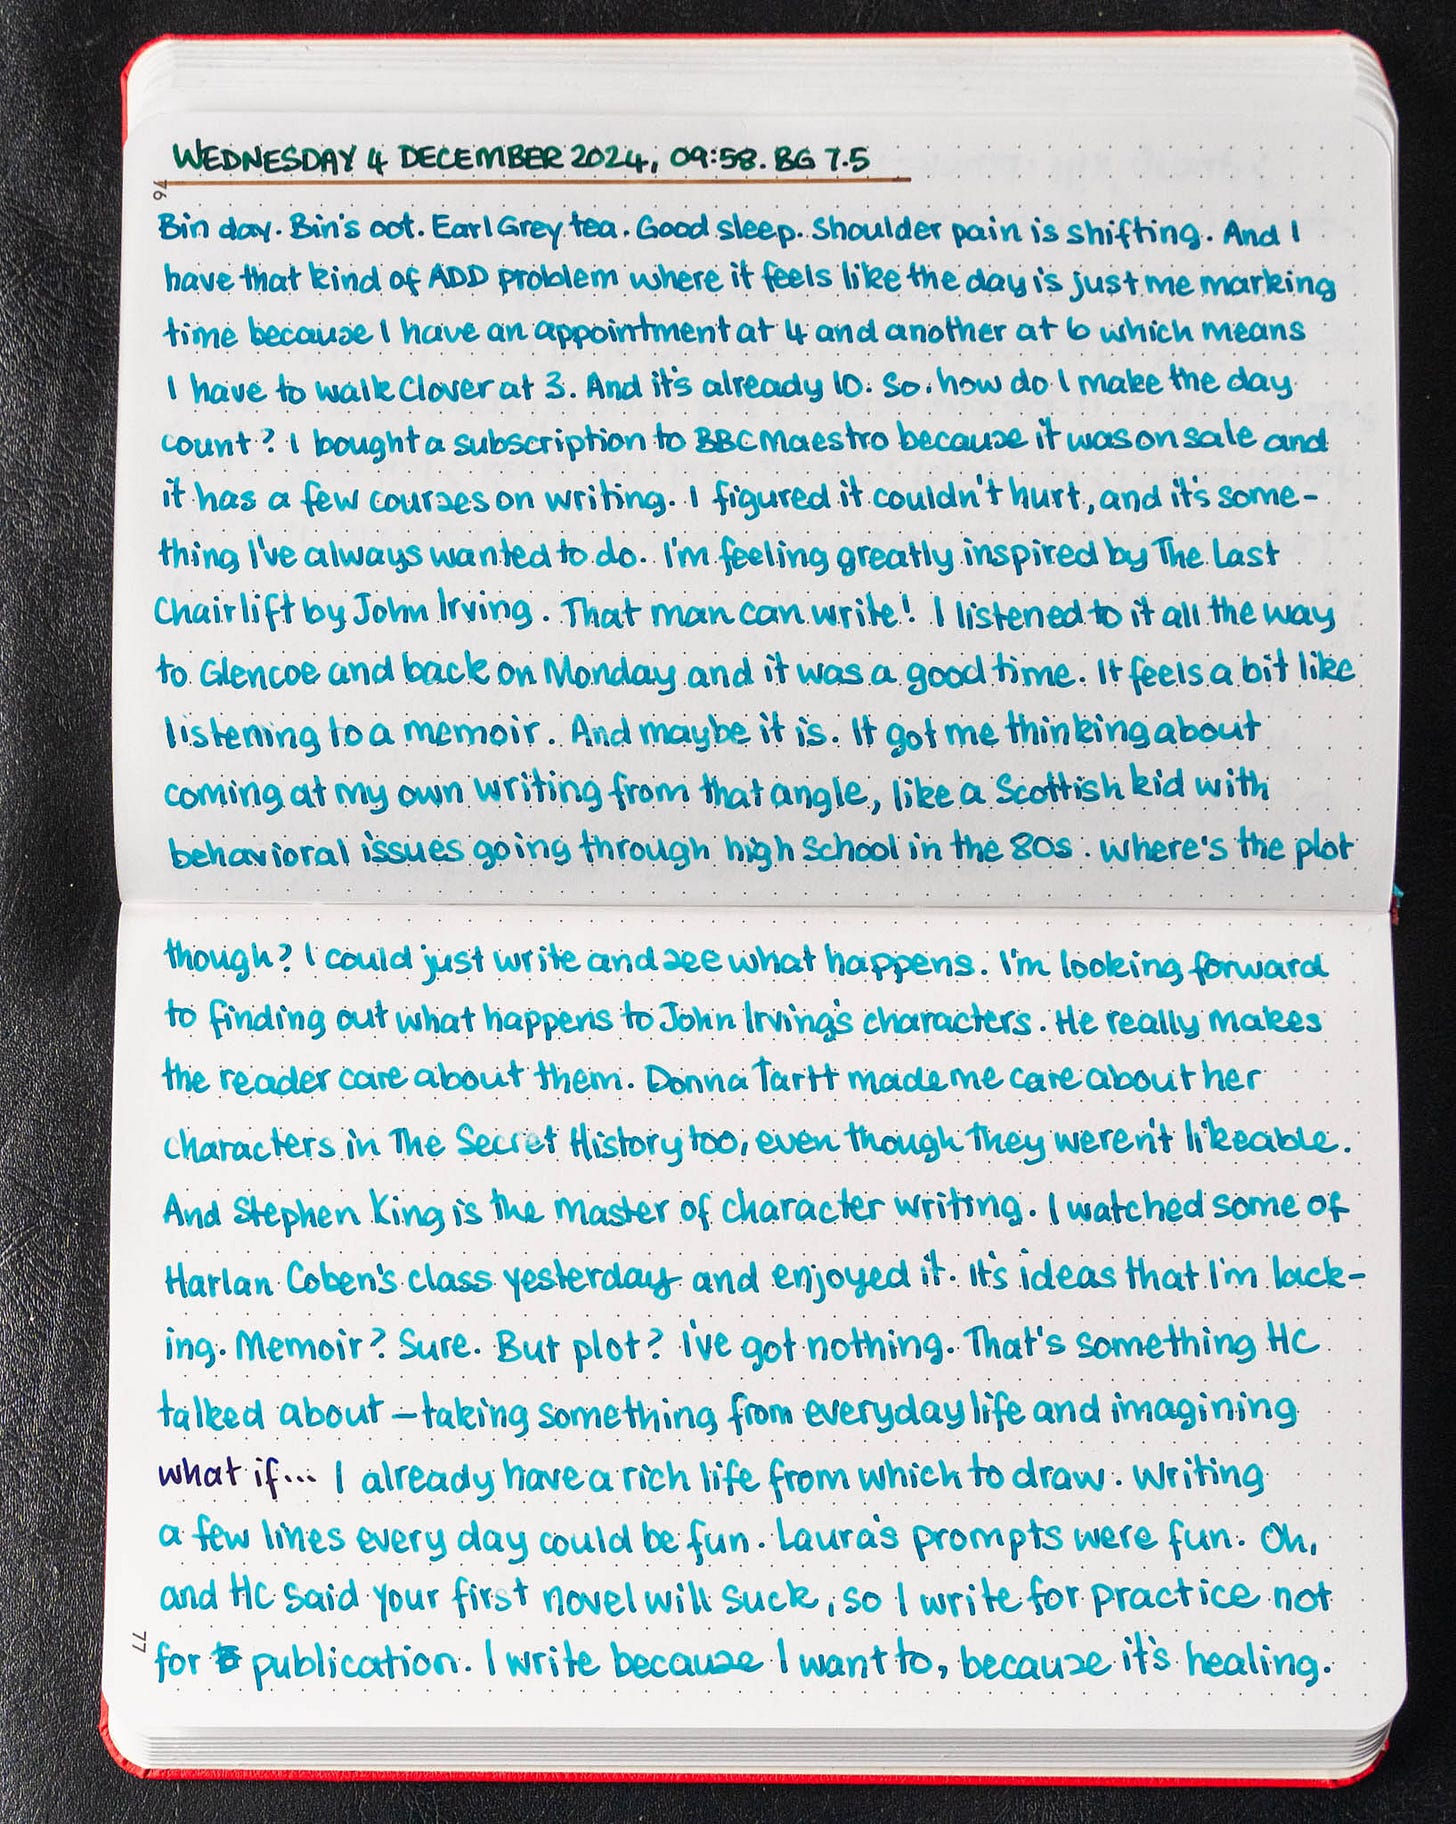 WEDNESDAY 4 DECEMBER 2024, 09:58. BG 7.5
76
Bin day. Bin's oot. Earl Grey tea. Good sleep. Shoulder pain is shifting. And I
have that kind of ADD problem where it feels like the day is just me marking
time because I have an appointment at 4 and another at 6 which means
I have to walk Clover at 3. And it's already 10. So. how do I make the day
count? I bought a subscription to BBC Maestro because it was on sale and
it has a few courses on writing. I figured it couldn't hurt, and it's some-
thing I've always wanted to do. I'm feeling greatly inspired by The Last
Chairlift by John Irving. That man can write! I listened to it all the way
to Glencoe and back on Monday and it was a good time. It feels a bit like
listening to a memoir. And maybe it is. It got me thinking about
coming at my own writing from that angle, like a Scottish kid with
behavioral issues going through high school in the 80s. Where's the plot
though? I could just write and see what happens. I'm looking forward
to finding out what happens to John Irving's characters. He really makes
the reader care about them. Donna Tartt made me care about her
characters in The Secret History too, even though they weren't likeable.
And Stephen King is the master of character writing. I watched some of
Harlan Coben's class yesterday and enjoyed it. It's ideas that I'm lack-
ing. Memoir? Sure. But plot? I've got nothing. That's something HC
talked about – taking something from everyday life and imagining
what if... I already have a rich life from which to draw. Writing
a few lines every day could be fun. Laura's prompts were fun. Oh,
and HC said your first novel will suck, so I write for practice not
for publication. I write because I want to, because it's healing.
77